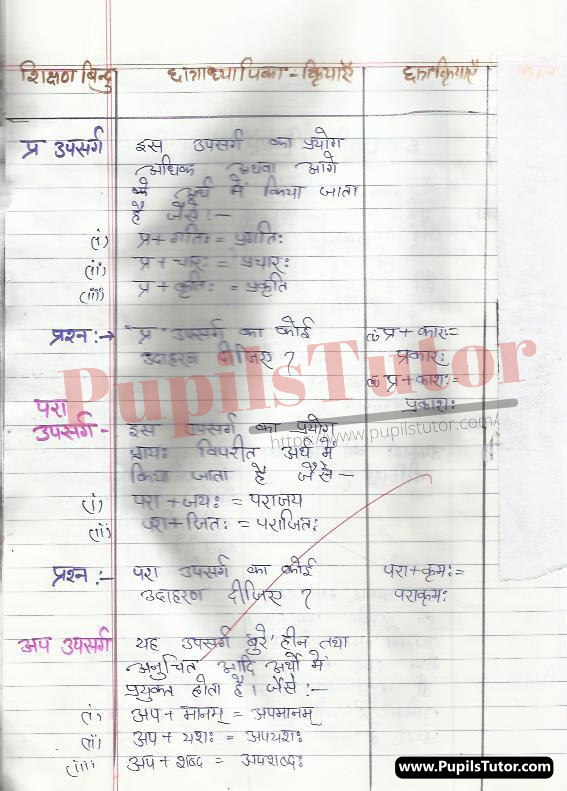 शिक्षण बिन्दु छात्राध्यापिका - क्रियाएँ छात्र क्रियाएँ
प्र उपसर्ग इस उपसर्ग का प्रयोग
अधिक अथवा आगे
के अर्थ में किया जाता
है जैसे :-
(i) प्र + गतिः = प्रगतिः
(ii) प्र + चारः = प्रचारः
(iii) प्र + कृतिः = प्रकृति
प्रश्न :→ "प्र" उपसर्ग का कोई प्र + कारः =
उदाहरण दीजिए ? प्रकारः
प्र + काशः =
प्रकाशः
PupilsTutor
परा
उपसर्ग - इस उपसर्ग का प्रयोग
http://www.pupilstutor.com
प्रायः विपरीत अर्थ में
किया जाता है जैसे -
(i) परा + जयः = पराजय
(ii) परा + जितः = पराजितः
प्रश्न :- परा उपसर्ग का कोई परा + क्रमः =
उदाहरण दीजिए ? पराक्रमः
अप उपसर्ग यह उपसर्ग बुरे हीन तथा
अनुचित आदि अर्थो में
प्रयुक्त होता है। जैसे :-
(i) अप + मानम् = अपमानम्
(ii) अप + यशः = अपयशः
(iii) अप + शब्द = अपशब्दः
www.PupilsTutor.com